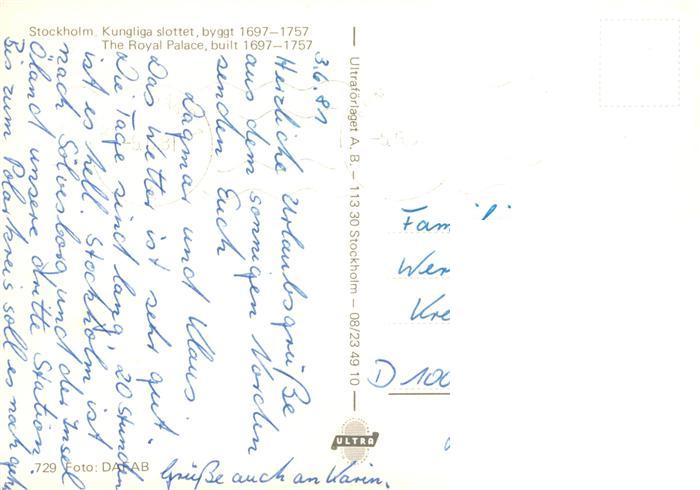 Stockholm. Kungliga slottet, byggt 1697—1757
The Royal Palace, built 1697—1757
3.6.81
Herzliche Urlaubsgrüße
aus dem sonnigen Norden
senden Euch
Dagmar und Klaus
Das Wetter ist sehr gut.
Die Tage sind lang, 20 Stunden
ist es hell. Stockholm ist
nach Sölvesborg und der Insel
Öland unsere dritte Station.
Bis zum Polarkreis soll es noch gehn.
Grüße auch an Karin.
729 Foto: DAFAB
Ultraförlaget A. B. — 113 30 Stockholm — 08/23 49 10
ULTRA
Fam
Wer
Kre
D 100